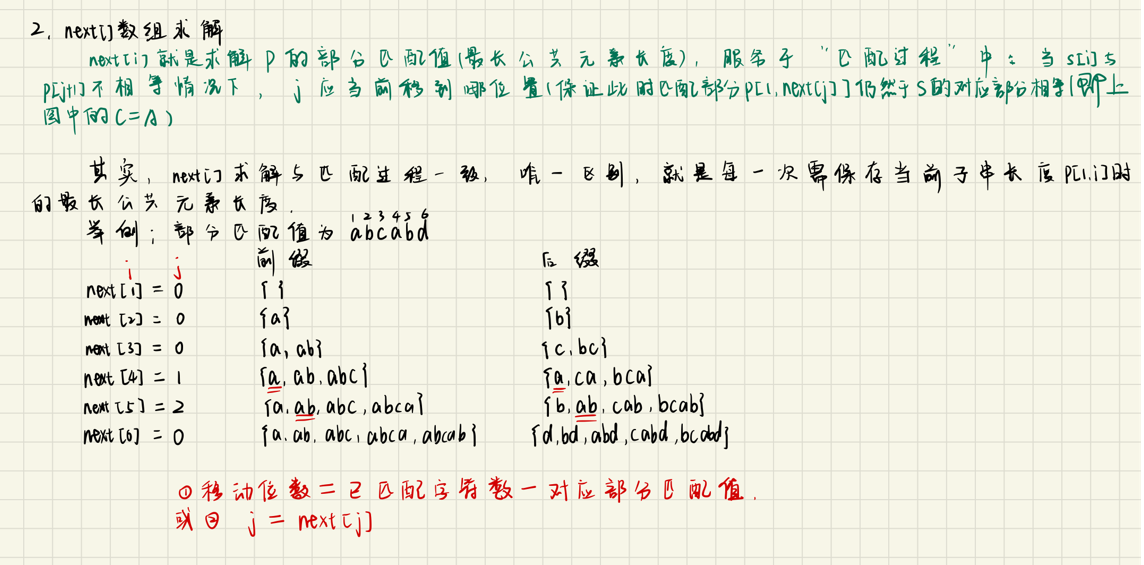 2. next[]数组求解
next[i]就是求解P的部分匹配值(最长公共元素长度), 服务于 "匹配过程" 中: 当s[i]与
P[j+1]不相等情况下, j应当前移到哪位置(保证此时匹配部分P[1,next[j]]仍然于S的对应部分相等(即上
图中的C=A)
其实, next[]求解与匹配过程一致, 唯一区别, 就是每一次需保存当前子串长度P[1,i]时
的最长公共元素长度.
1 2 3 4 5 6
举例; 部分匹配值为 abcabd
i j 前缀 后缀
next[1] = 0 { } { }
next[2] = 0 {a} {b}
next[3] = 0 {a, ab} {c, bc}
next[4] = 1 {a, ab, abc} {a, ca, bca}
next[5] = 2 {a, ab, abc, abca} {b, ab, cab, bcab}
next[6] = 0 {a, ab, abc, abca, abcab} {d, bd, abd, cabd, bcabd}
① 移动位数 = 已匹配字符数 - 对应部分匹配值.
或② j = next[j]